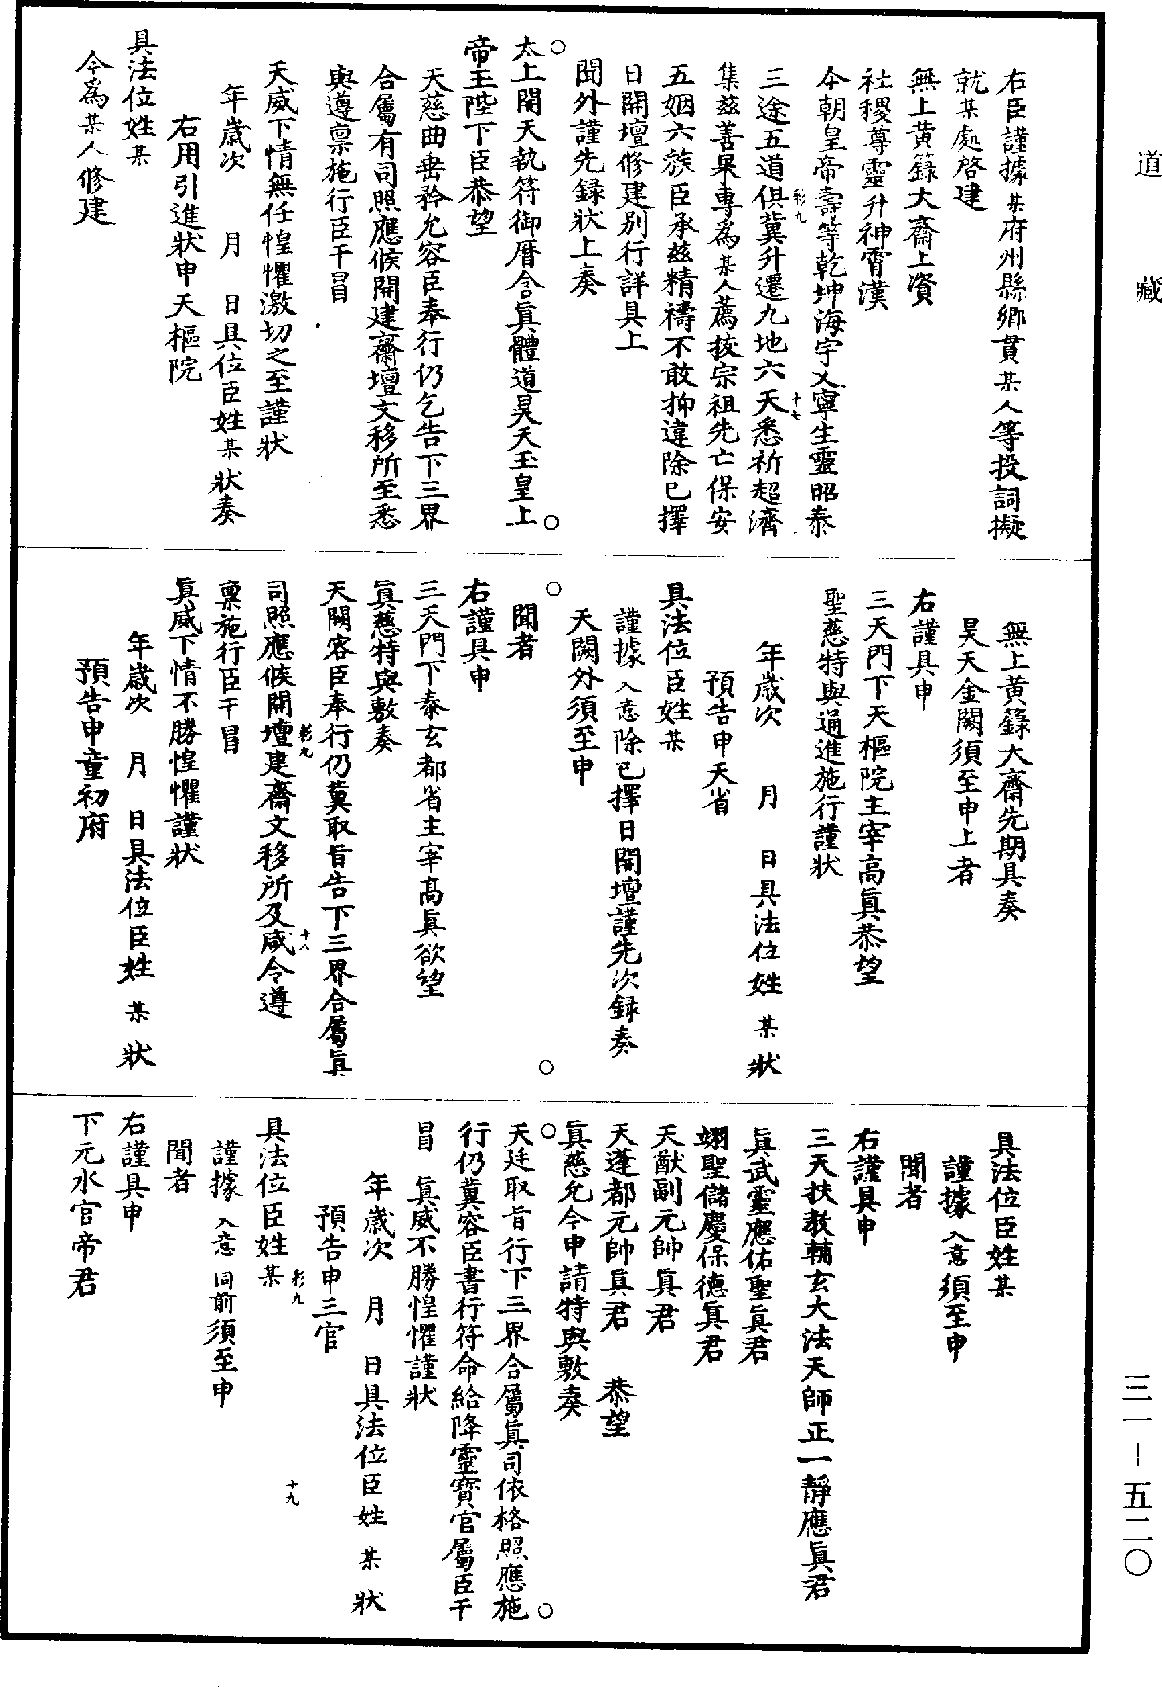 道藏
右臣謹據某府州縣鄉貫某人等投詞擬
就某處啓建
無上黃籙大齋上資
社稷尊靈升神霄漢
今朝皇帝壽等乾坤海宇乂寧生靈昭泰
彰九 十七
三途五道俱冀升遷九地六天悉祈超濟
集兹善果專為某人薦拔宗祖先亡保安
五姻六族臣承兹精禱不敢抑違除已擇
日開壇修建别行詳具上
聞外謹先録狀上奏
太上開天執符御曆含眞體道昊天玉皇上
帝玉陛下臣恭望
天慈曲垂矜允容臣奉行仍乞告下三界
合屬有司照應候開建齋壇文移所至悉
與遵禀施行臣干冒
天威下情無任惶懼激切之至謹狀
年歲次 月 日具位臣姓某 狀奏
右用引進狀申天樞院
具法位姓某
今為某人修建
無上黃籙大齋先期具奏
昊天金闕須至申上者
右謹具申
三天門下天樞院主宰高眞恭望
聖慈特與通進施行謹狀
年歲次 月 日具法位姓 某 狀
預告申天省
具法位臣姓某
謹據入意除已擇日開壇謹先次録奏
天闕外須至申
聞者
右謹具申
三天門下泰玄都省主宰髙眞欲望
眞慈特與敷奏
天闕容臣奉行仍冀取旨告下三界合屬眞
彰九 十八
司照應候開壇建齋文移所及咸令遵
禀施行臣干冒
眞威下情不勝惶懼謹狀
年歲次 月 日具法位臣姓 某 狀
預告申童初府
具法位臣姓某
謹據入意須至申
聞者
右謹具申
三天扶教輔玄大法天師正一靜應眞君
眞武靈應佑聖眞君
翊聖儲慶保德眞君
天猷副元帥眞君
天蓬都元帥眞君 恭望
眞慈允今申請特與敷奏
天廷取旨行下三界合屬眞司依格照應施
行仍冀容臣書行符命給降靈寶官屬臣干
冒 眞威不勝惶懼謹狀
年歲次 月 日具法位臣姓 某 狀
預告申三官
彰九 十九
具法位臣姓某
謹據入意同前須至申
聞者
右謹具申
下元水官帝君
三一-五二〇